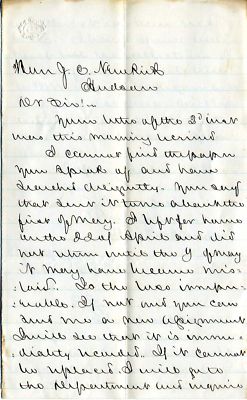 Hon J. C. Newkirk
Hudson
Dr Sir:
Your letter of the 3d inst
was this morning received
I cannot find the paper
you speak of and have
searched diligently. You say
that sent it turns about the
first of May. I left for home
on the 22d of April and did
not return until the 9 of May
it may have became mis-
laid. So the loss is
If not and you can
send me a new assignment
I will see that it is imme-
diately recorded. If it cannot
be replaced I will go to
the department and inquire